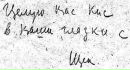 Целую вас Кис
в Ваши глазки с
Щен